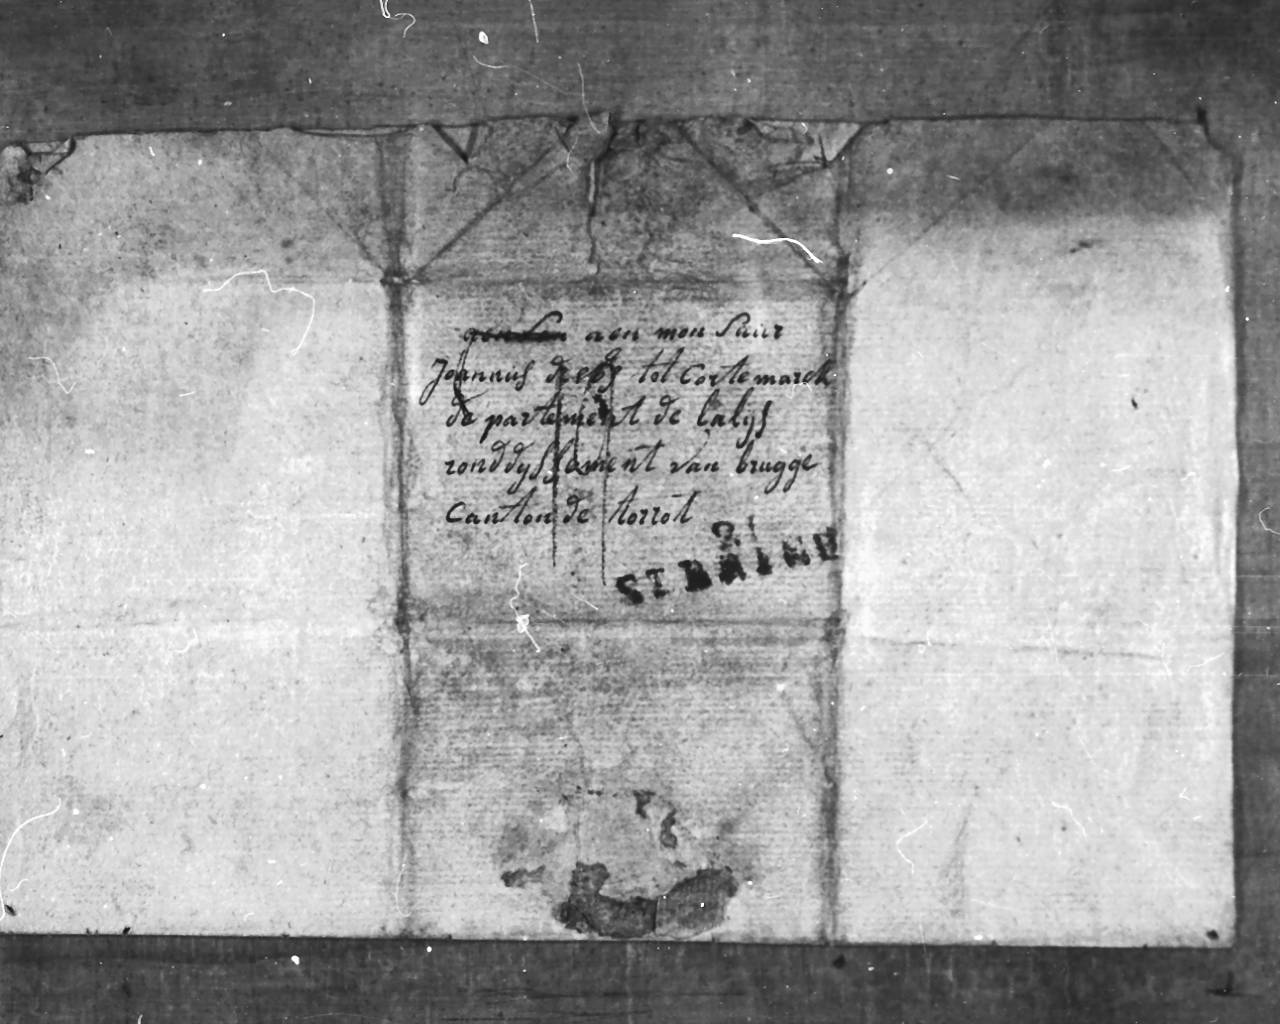 aen mon Suur
Joannus tot Cortemarck
de partement de lalys
ronddyssement van brugge
Canton de torrot
21
ST BRIEU